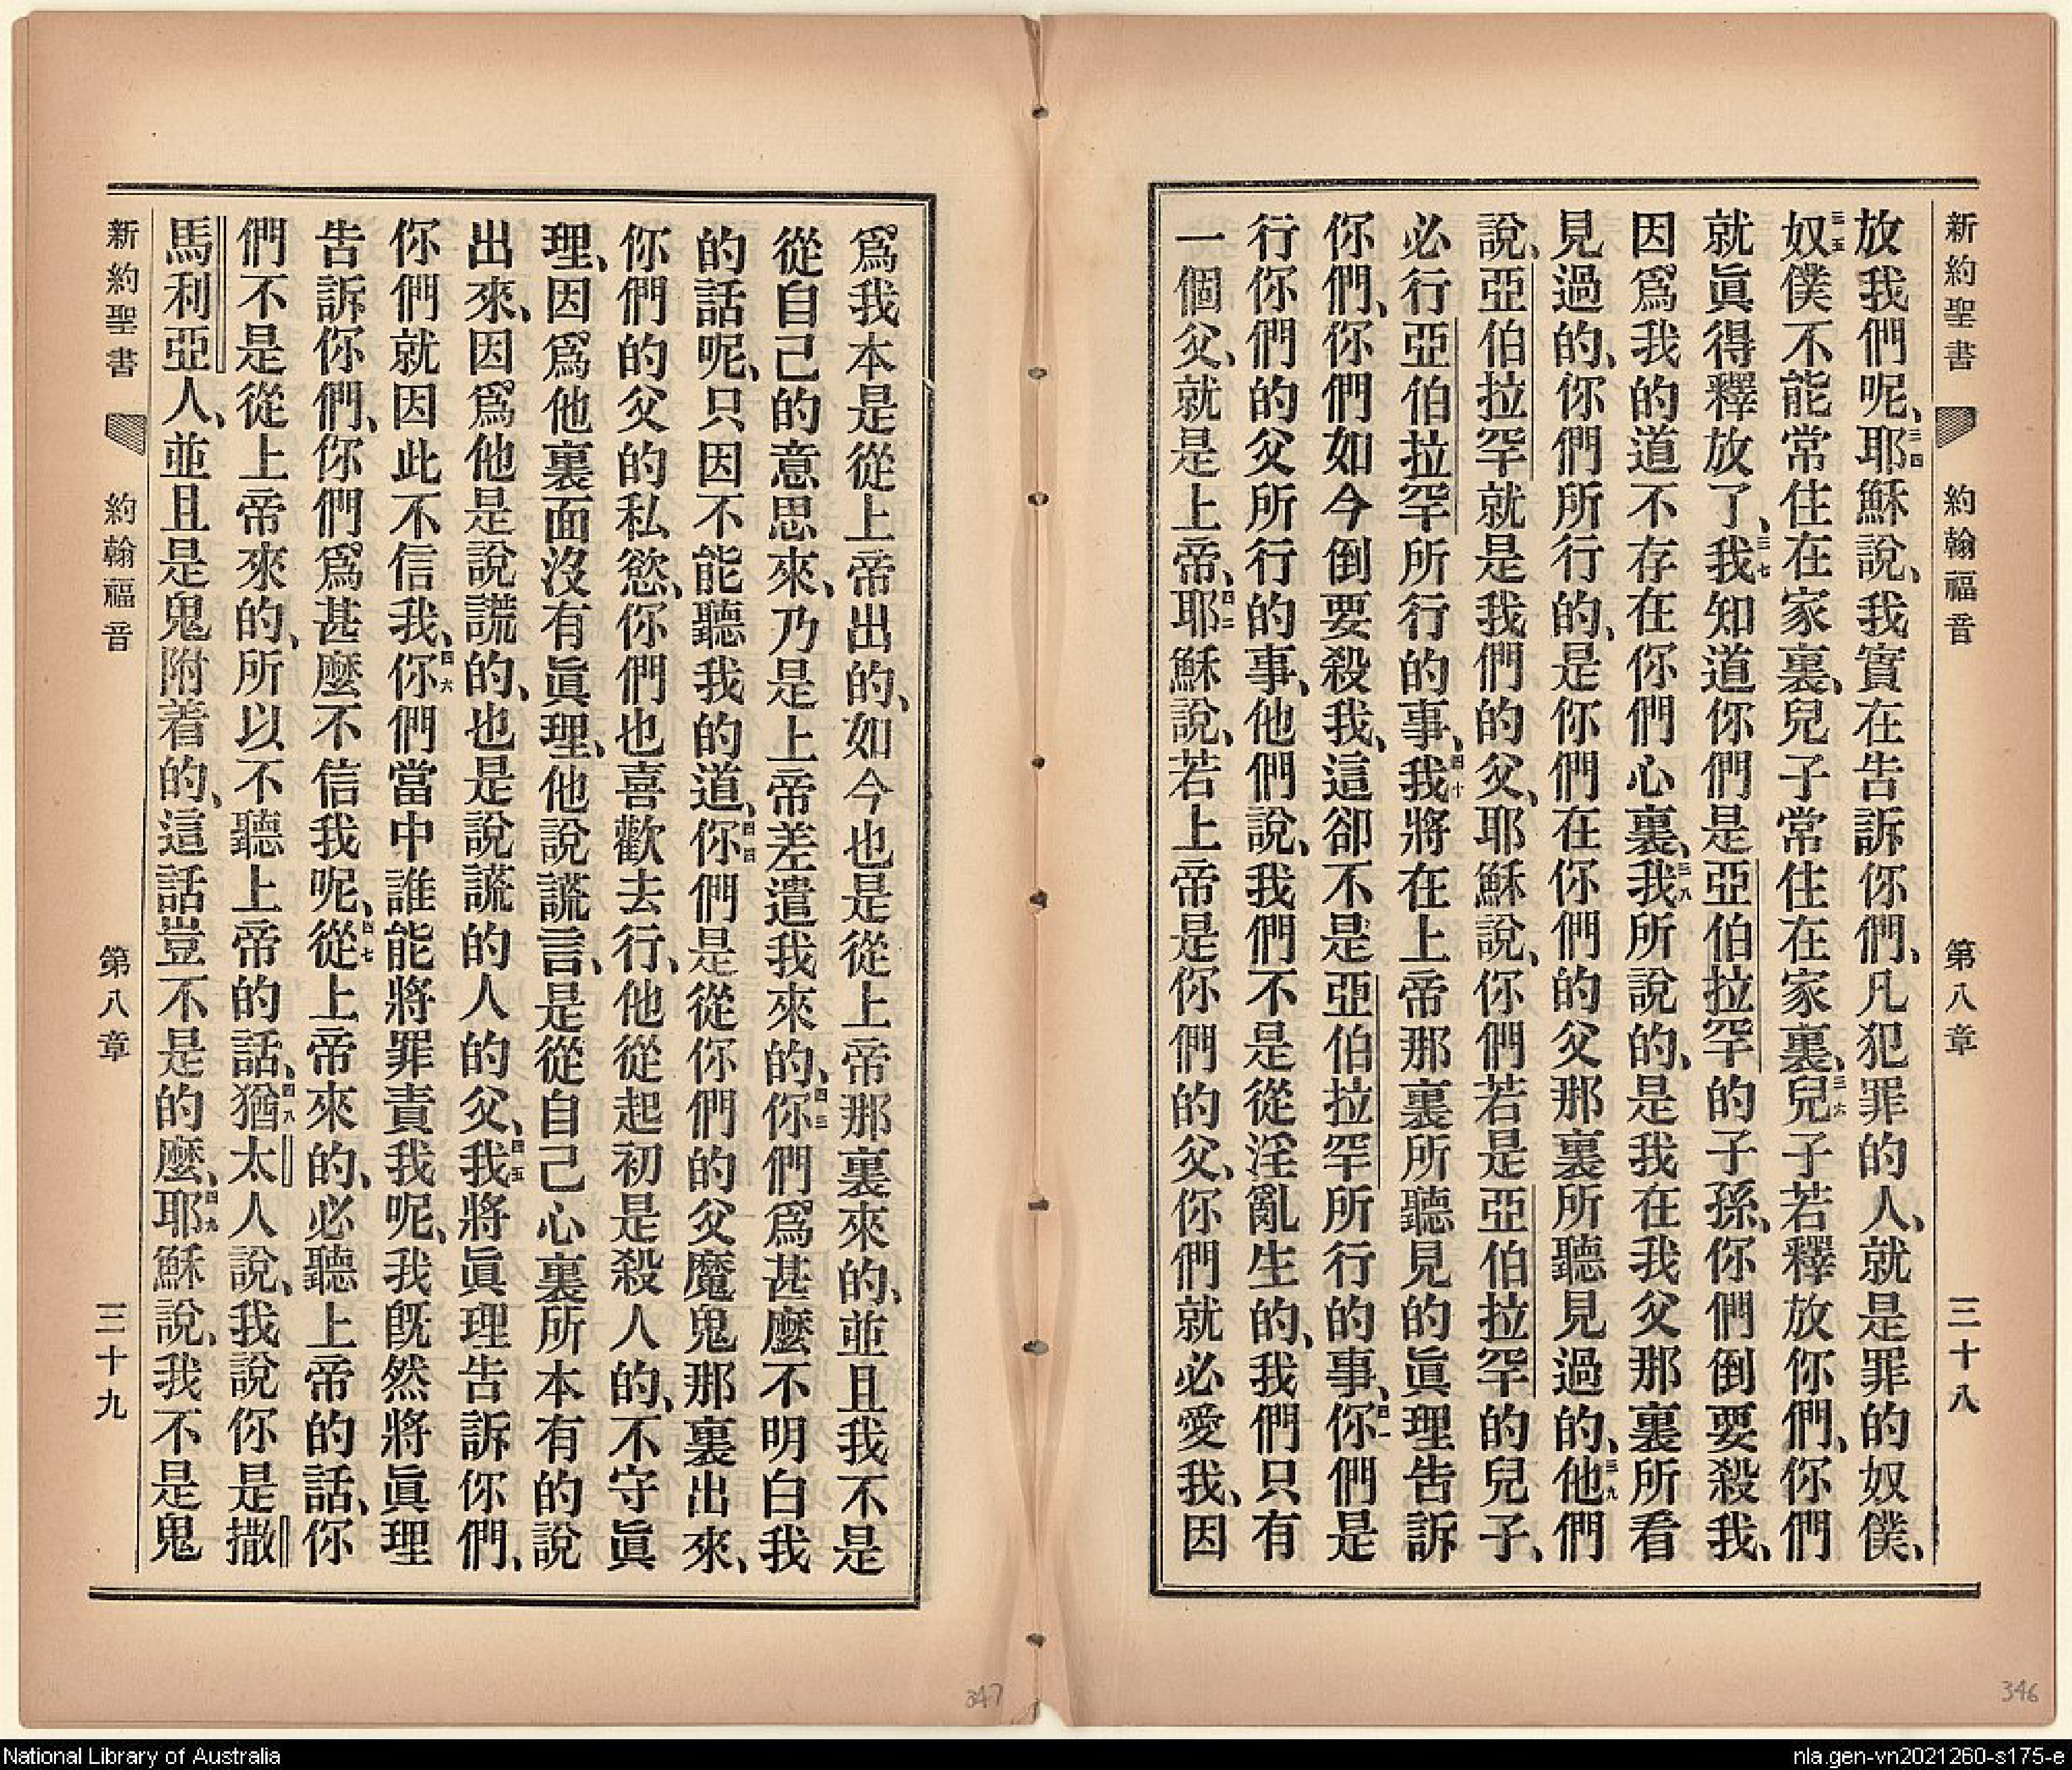 新約聖書 約翰福音 第八章 三十八
放我們呢、三四耶穌說、我實在告訴你們、凡犯罪的人、就是罪的奴僕、
三五奴僕不能常住在家裏、兒子常住在家裏、三六兒子若釋放你們、你們
就眞得釋放了、三七我知道你們是亞伯拉罕的子孫、你們倒要殺我、
因爲我的道不存在你們心裏、三八我所說的、是我在我父那裏所看
見過的、你們所行的、是你們在你們的父那裏所聽見過的、三九他們
說、亞伯拉罕就是我們的父、耶穌說、你們若是亞伯拉罕的兒子、
必行亞伯拉罕所行的事、四十我將在上帝那裏所聽見的眞理告訴
你們、你們如今倒要殺我、這卻不是亞伯拉罕所行的事、四一你們是
行你們的父所行的事、他們說、我們不是從淫亂生的、我們只有
一個父、就是上帝、四二耶穌說、若上帝是你們的父、你們就必愛我、因
爲我本是從上帝出的、如今也是從上帝那裏來的、並且我不是
從自己的意思來、乃是上帝差遣我來的、四三你們爲甚麼不明白我
的話呢、只因不能聽我的道、四四你們是從你們的父魔鬼那裏出來、
你們的父的私慾、你們也喜歡去行、他從起初是殺人的、不守眞
理、因爲他裏面沒有眞理、他說謊言、是從自己心裏所本有的說
出來、因爲他是說謊的、也是說謊的人的父、四五我將眞理告訴你們、
你們就因此不信我、四六你們當中誰能將罪責我呢、我旣然將眞理
告訴你們、你們爲甚麼不信我呢、四七從上帝來的、必聽上帝的話、你
們不是從上帝來的、所以不聽上帝的話、四八猶太人說、我說你是撒
馬利亞人、並且是鬼附着的、這話豈不是的麼、四九耶穌說、我不是鬼
新約聖書 約翰福音 第八章 三十九
347
346
National Library of Australia
nla.gen-vn2021260-s175-e